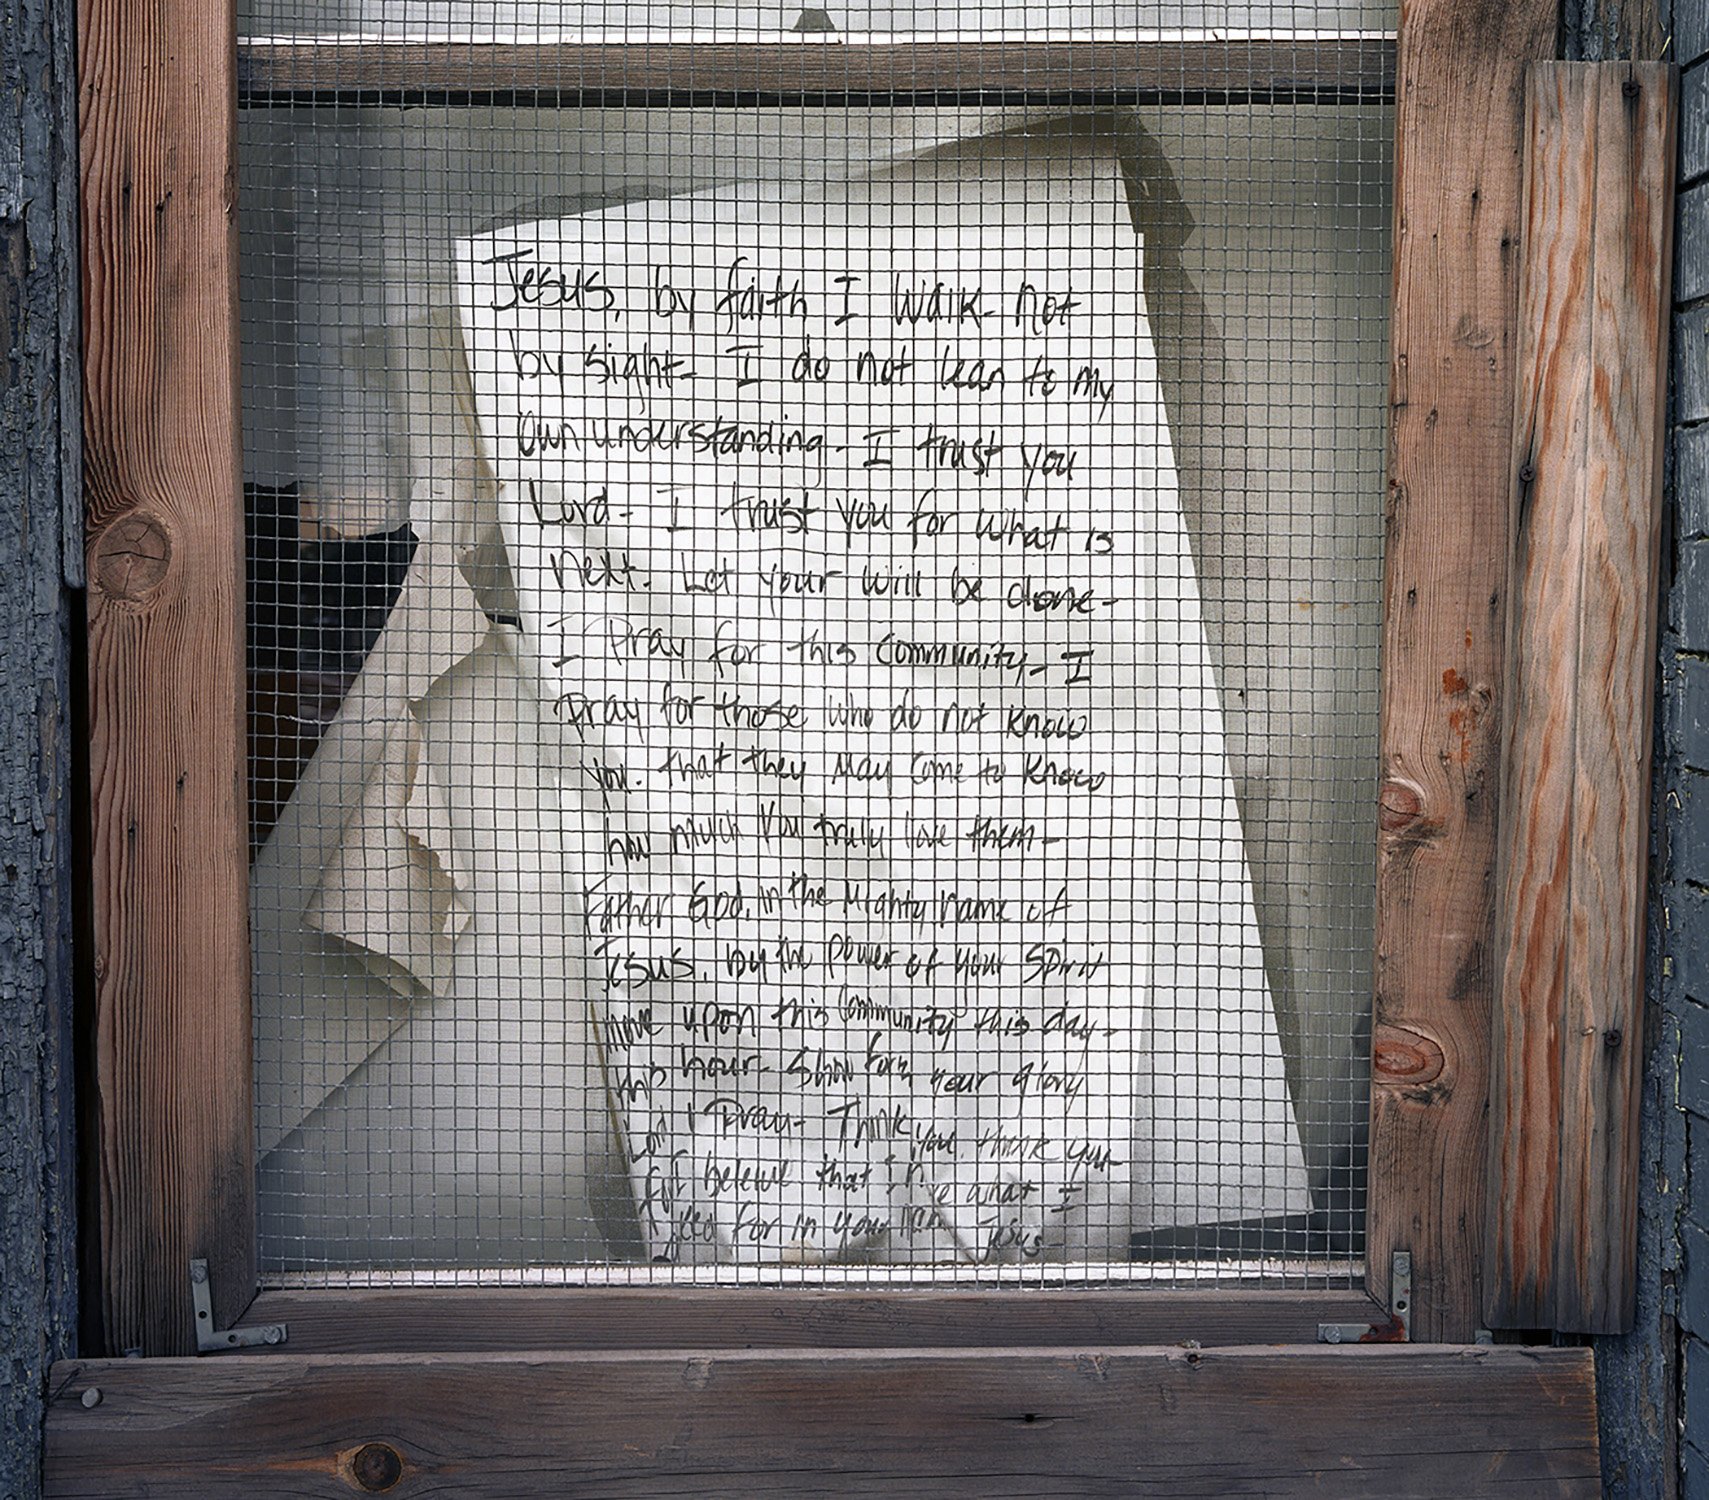 Jesus, by faith I walk - not
by sight - I do not lean to my
own understanding - I trust you
Lord - I trust you for what is
next. Let your will be done -
I pray for this community - I
pray for those who do not know
you. that they may come to know
how much you truly love them -
Father God, in the Mighty name of
Jesus, by the power of your Spirit
move upon this community this day -
this hour - show forth your glory
Lord I Pray - Thank you, thank you
I beleive that what I
for in your Jesus